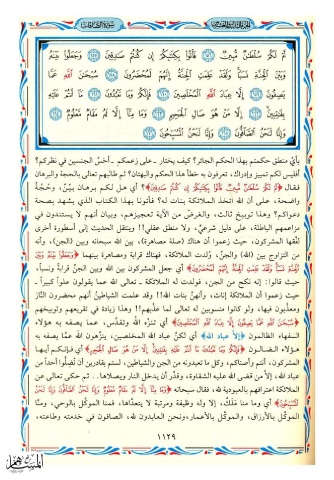 سورة الصافات
الجزء الثالث والعشرون
أَمْ لَكُمْ سُلْطَانٌ مُبِينٌ ﴿١٥٦﴾ فَأْتُوا بِكِتَابِكُمْ إِنْ كُنْتُمْ صَادِقِينَ ﴿١٥٧﴾ وَجَعَلُوا بَيْنَهُ
وَبَيْنَ الْجِنَّةِ نَسَبًا وَلَقَدْ عَلِمَتِ الْجِنَّةُ إِنَّهُمْ لَمُحْضَرُونَ ﴿١٥٨﴾ سُبْحَانَ اللَّهِ عَمَّا
يَصِفُونَ ﴿١٥٩﴾ إِلَّا عِبَادَ اللَّهِ الْمُخْلَصِينَ ﴿١٦٠﴾ فَإِنَّكُمْ وَمَا تَعْبُدُونَ ﴿١٦١﴾ مَا أَنْتُمْ عَلَيْهِ
بِفَاتِنِينَ ﴿١٦٢﴾ إِلَّا مَنْ هُوَ صَالِ الْجَحِيمِ ﴿١٦٣﴾ وَمَا مِنَّا إِلَّا لَهُ مَقَامٌ مَعْلُومٌ ﴿١٦٤﴾
وَإِنَّا لَنَحْنُ الصَّافُّونَ ﴿١٦٥﴾ وَإِنَّا لَنَحْنُ الْمُسَبِّحُونَ ﴿١٦٦﴾
بأيّ منطق حكمتم بهذا الحكم الجائر؟ كيف يختار ـ على زعمكم ـ أخسَّ الجنسين في نظركم؟
أفليس لكم تمييز وإدراك، تعرفون به خطأ هذا الحكم والبهتان؟ ثم طالبهم تعالى بالحجة والبرهان
فقال ﴿أَمْ لَكُمْ سُلْطَانٌ مُبِينٌ فَأْتُوا بِكِتَابِكُمْ إِنْ كُنْتُمْ صَادِقِينَ﴾؟ أي هل لكم برهان بيِّن، وحُجَّةٌ
واضحة، على أن الله اتخذ الملائكة بنات له؟ فأتونا بهذا الكتاب الذي يشهد بصحة
دعواكم؟ وهذا توبيخ ثالث، والغرضُ من الآية تعجيزهم، وبيان أنهم لا يستندون في
مزاعمهم الباطلة، على دليل شرعيّ، ولا منطق عقليّ!! وينتقل الحديث إلى أسطورة أخرى
لفَّقها المشركون، حيث زعموا أن هناك (صلة مصاهرة)، بين الله سبحانه وبين (الجن)، وأنه
من التزاوج بين (الله) والجنّ، وُلدت الملائكة، فهناك قرابة ومصاهرة بينهما ﴿وَجَعَلُوا بَيْنَهُ وَبَيْنَ
الْجِنَّةِ نَسَبًا وَلَقَدْ عَلِمَتِ الْجِنَّةُ إِنَّهُمْ لَمُحْضَرُونَ﴾ أي جعل المشركون بين الله وبين الجنّ قرابةً ونسباً،
حيث قالوا: إنه نكح من الجن، فولدت له الملائكة ـ تعالى الله عما يقولون علواً كبيراً ـ
حيث زعموا أن الملائكة إناث، وأنهنَّ بنات الله!! وقد علمت الشياطينُ أنهم محضرون النَّار
ومعذَّبون فيها، ولو كانوا منسوبين له تعالى لما عذَّبهم!! وهذا زيادة في تقريعهم وتوبيخهم
﴿سُبْحَانَ اللَّهِ عَمَّا يَصِفُونَ إِلَّا عِبَادَ اللَّهِ الْمُخْلَصِينَ﴾ أي تنزَّه الله وتقدَّس، عما يصفه به هؤلاء
السفهاء الظالمون ﴿إِلَّا عِبَادَ اللَّهِ﴾ أي لكنْ عباد الله المخلصين، ينزِّهون الله عمَّا يصفه به
هؤلاء الضالون ﴿فَإِنَّكُمْ وَمَا تَعْبُدُونَ مَا أَنْتُمْ عَلَيْهِ بِفَاتِنِينَ إِلَّا مَنْ هُوَ صَالِ الْجَحِيمِ﴾ أي فإنكم أيها
المشركون، أنتم وأصنامكم، وكل ما تعبدونه من الجن والشياطين، لستم بقادرين أن تُضِلُّوا أحداً من
عباد الله، إلاَّ من قضى الله عليه الشقاوة، وقدَّر أن يدخل النار ويصلاها.. ثم حكى تعالى عن
الملائكة اعترافهم بالعبودية لله، فقال سبحانه ﴿وَمَا مِنَّا إِلَّا لَهُ مَقَامٌ مَعْلُومٌ وَإِنَّا لَنَحْنُ الصَّافُّونَ وَإِنَّا لَنَحْنُ
الْمُسَبِّحُونَ﴾ أي وما منا مَلَكٌ، إلا وله وظيفة ومرتبة لا يتعدَّاها، فمنا الموكَّل بالوحي، ومنَّا
الموكَّل بالأرزاق، والموكَّل بالأعمار، ونحن العابدون لله، الصافون في خدمته وطاعته،
١١٢٩